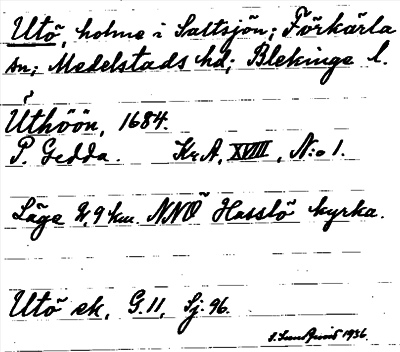 Utö, holme i Saltsjön; Förkärla
sn; Medelstads hd; Blekinge l.
Üthöön, 1684.
P. Gedda. Kr.A, XVIII, N:o 1.
Läge 2,9 km. NNO Hasslö kyrka.
Utö ek, G.11, Sj. 96.
1936